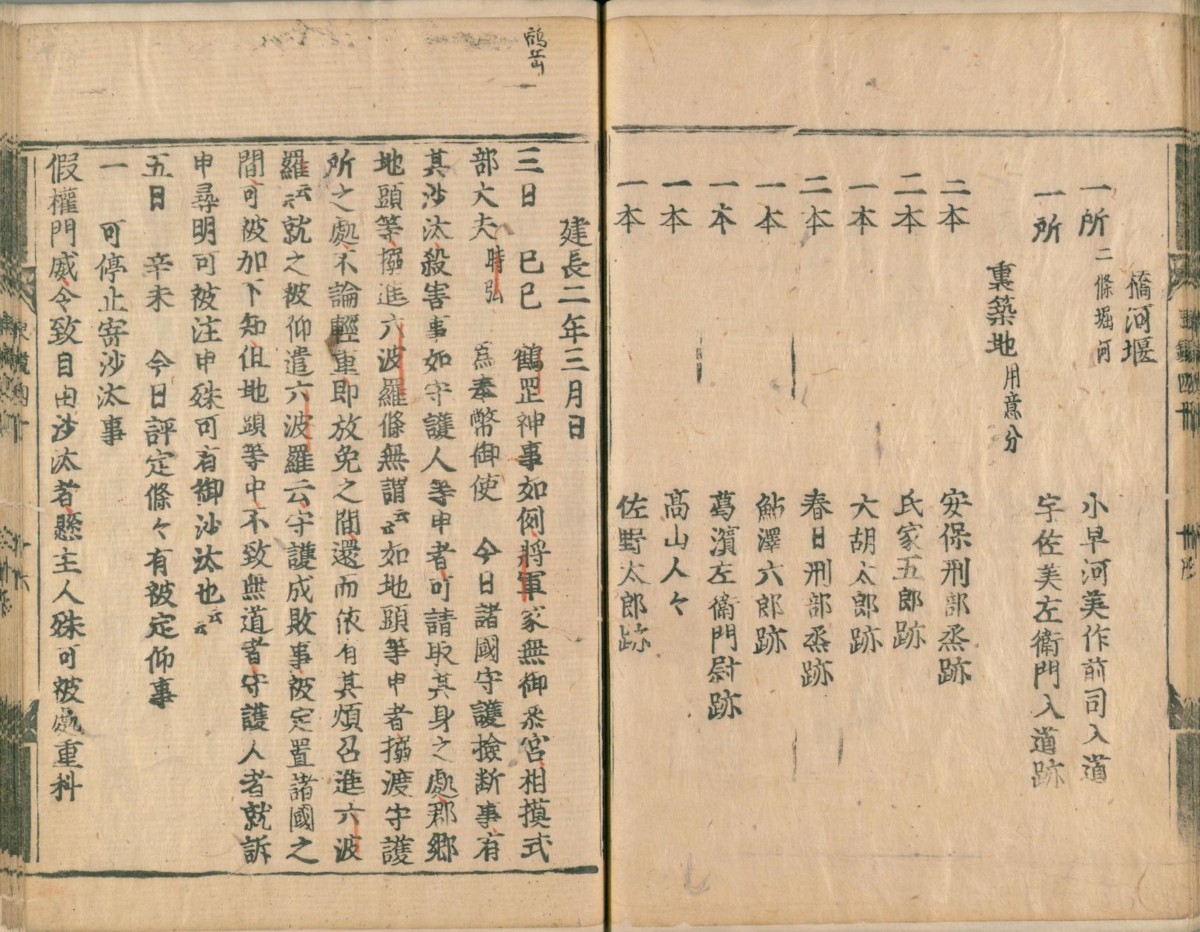 橋河堰
一所 二條堀河 小早河美作前司入道
一所 宇佐美左衛門入道跡
裏築地用意分
二本 安保刑部烝跡
二本 氏家五郎跡
一本 大胡太郎跡
二本 春日刑部烝跡
一本 鮎澤六郎跡
一本 葛濱左衛門尉跡
一本 高山人々
一本 佐野太郎跡
鶴岡
建長二年三月日
三日 己巳 鶴罡神事如例將軍家無御參宮相摸式
部大夫時弘為奉幣御使 今日諸國守護撿断事有
其沙汰殺害事如守護人等申者可請取其身之處郡鄉
地頭等搦進六波羅條無謂云云如地頭等申者搦渡守護
所之處不論輕重即放免之間還而依有其煩召進六波
羅云云就之被仰遣六波羅云守護成敗事被定置諸國之
間可被加下知但地頭等中不致無道者守護人者就訴
申尋明可被注申殊可有御沙汰也云云
五日 辛未 今日評定條々有被定仰事
一 可停止寄沙汰事
假權門威令致自由沙汰者懸主人殊可被處重科